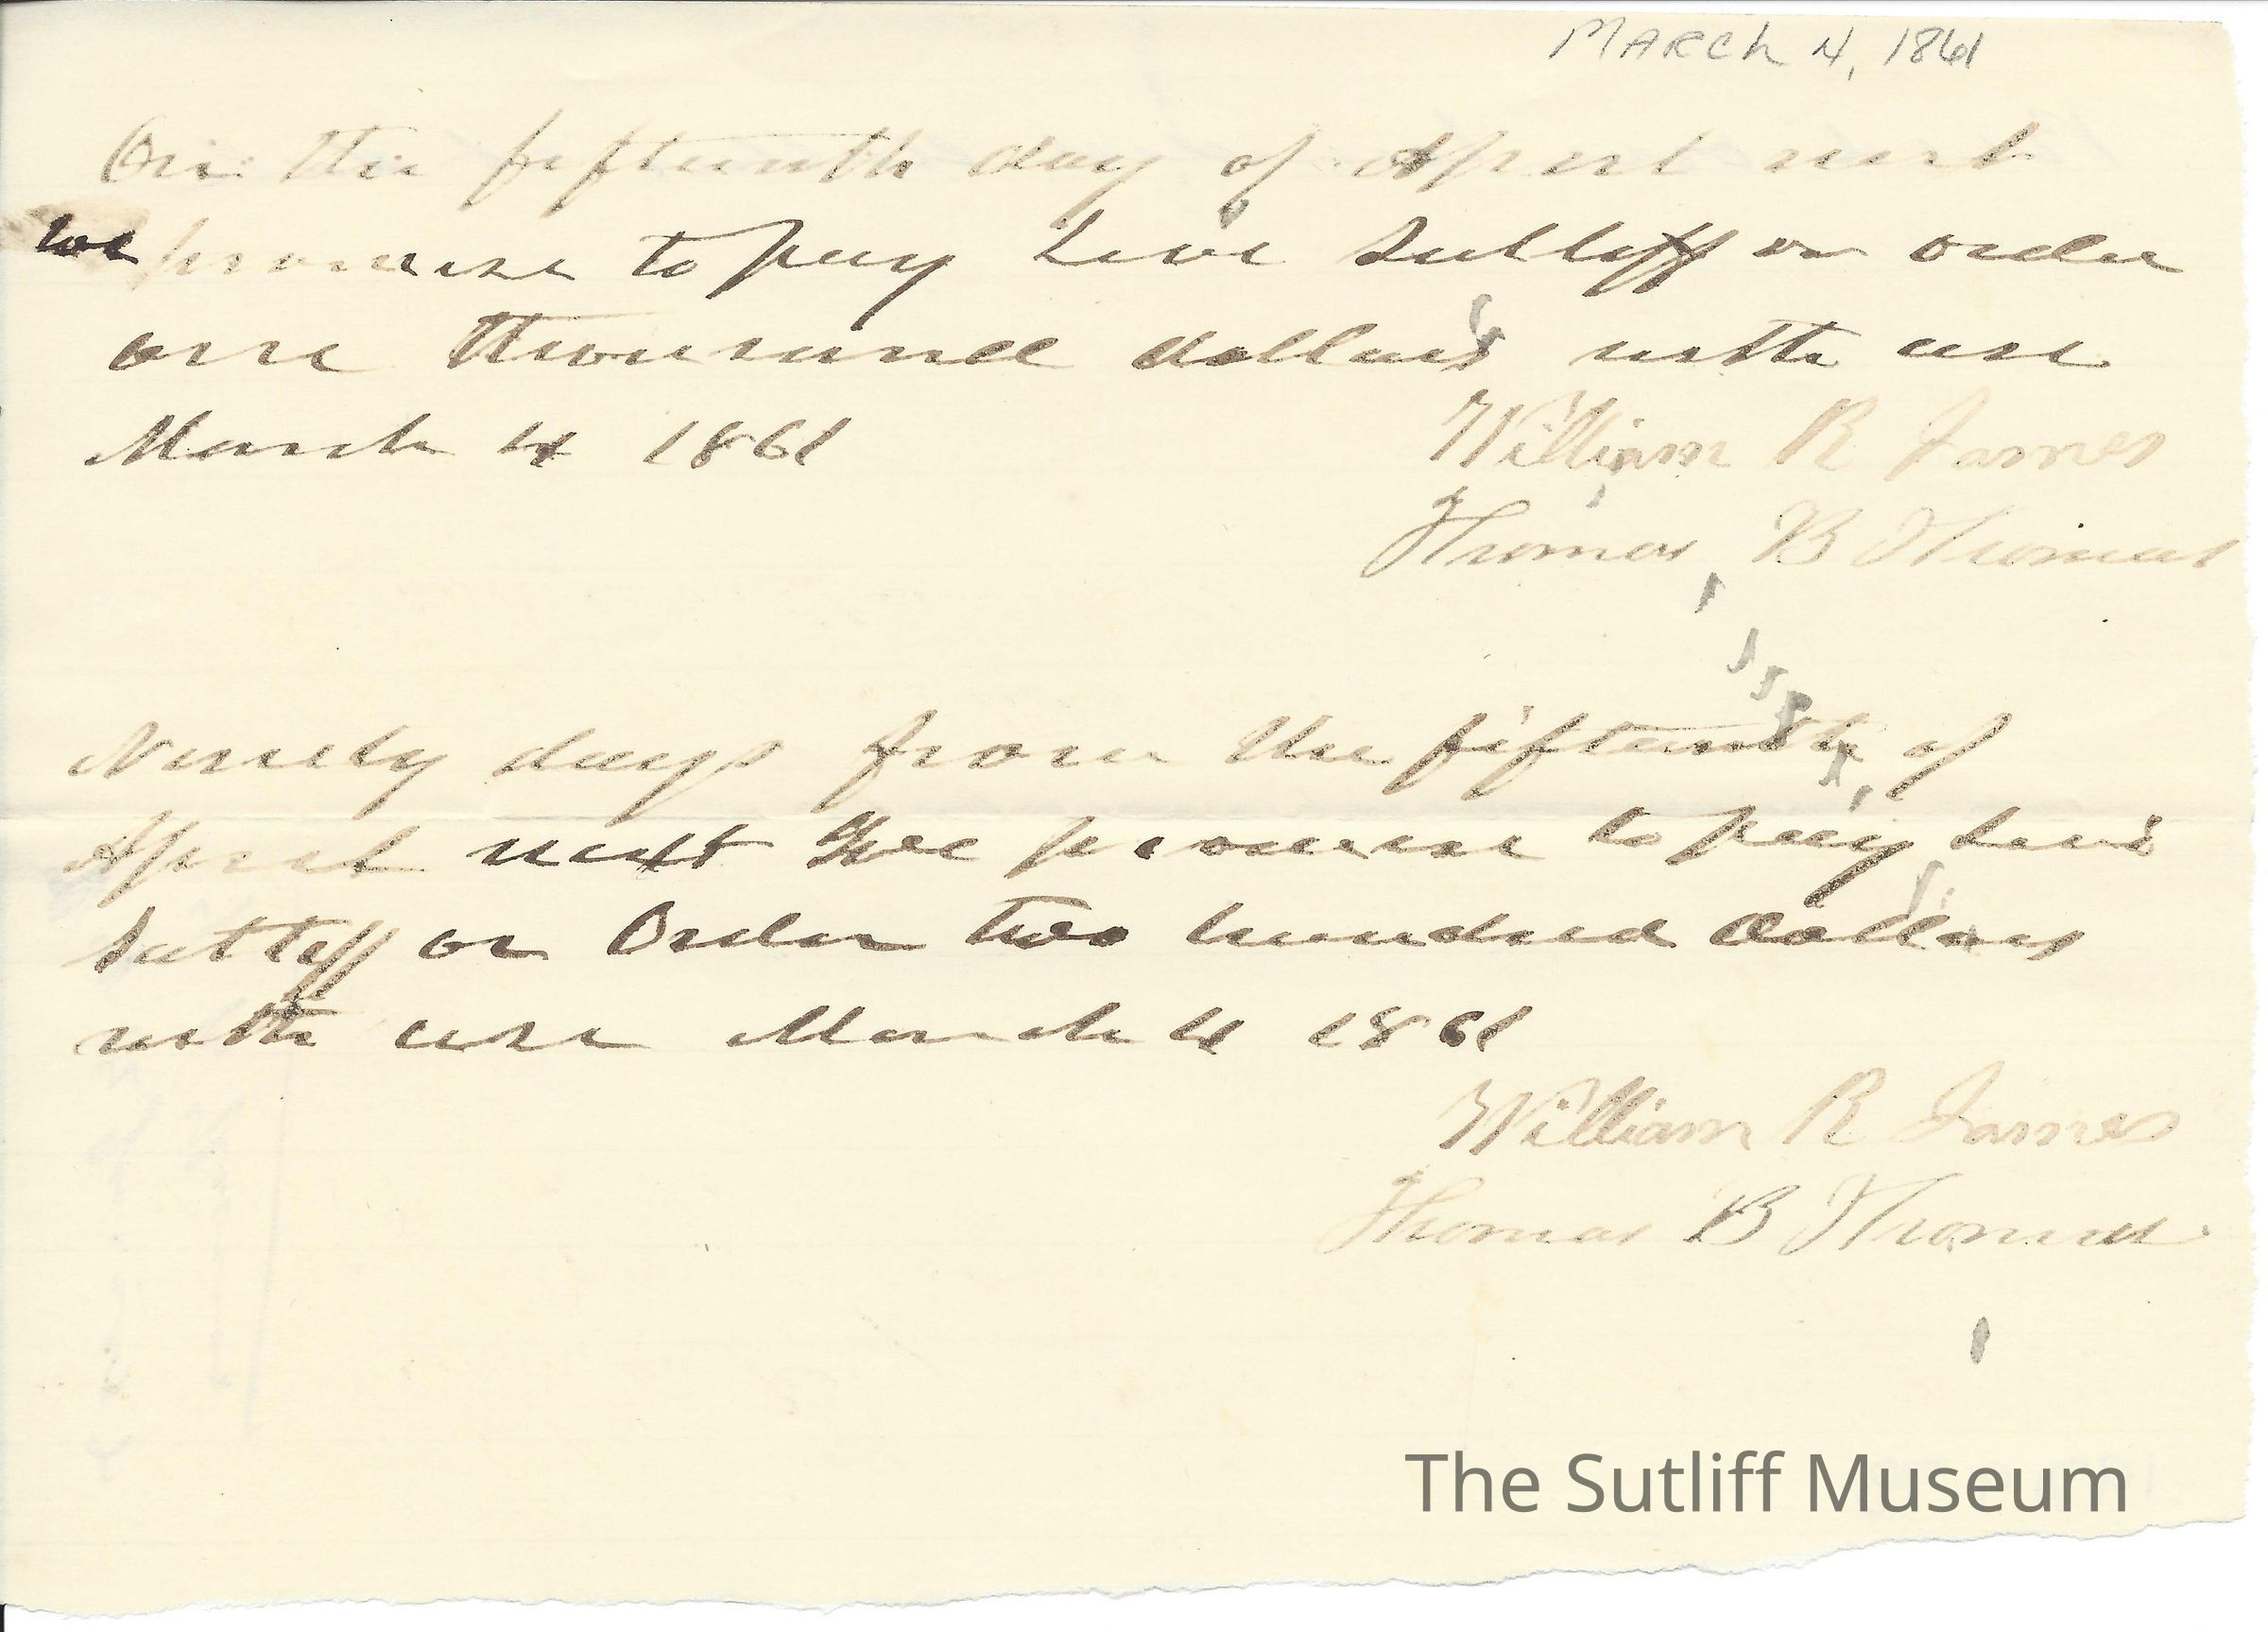 MARCH 4, 1861
On the fifteenth day of April next
we promise to pay Levi Sutliff or order
one thousand dollars with use
March 4 1861
William R James
Thomas B Thomas
Ninety days from the fifteenth of
April next We promise to pay Levi
Sutliff or Order two hundred dollars
with use March 4 1861
William R James
Thomas B Thomas
The Sutliff Museum